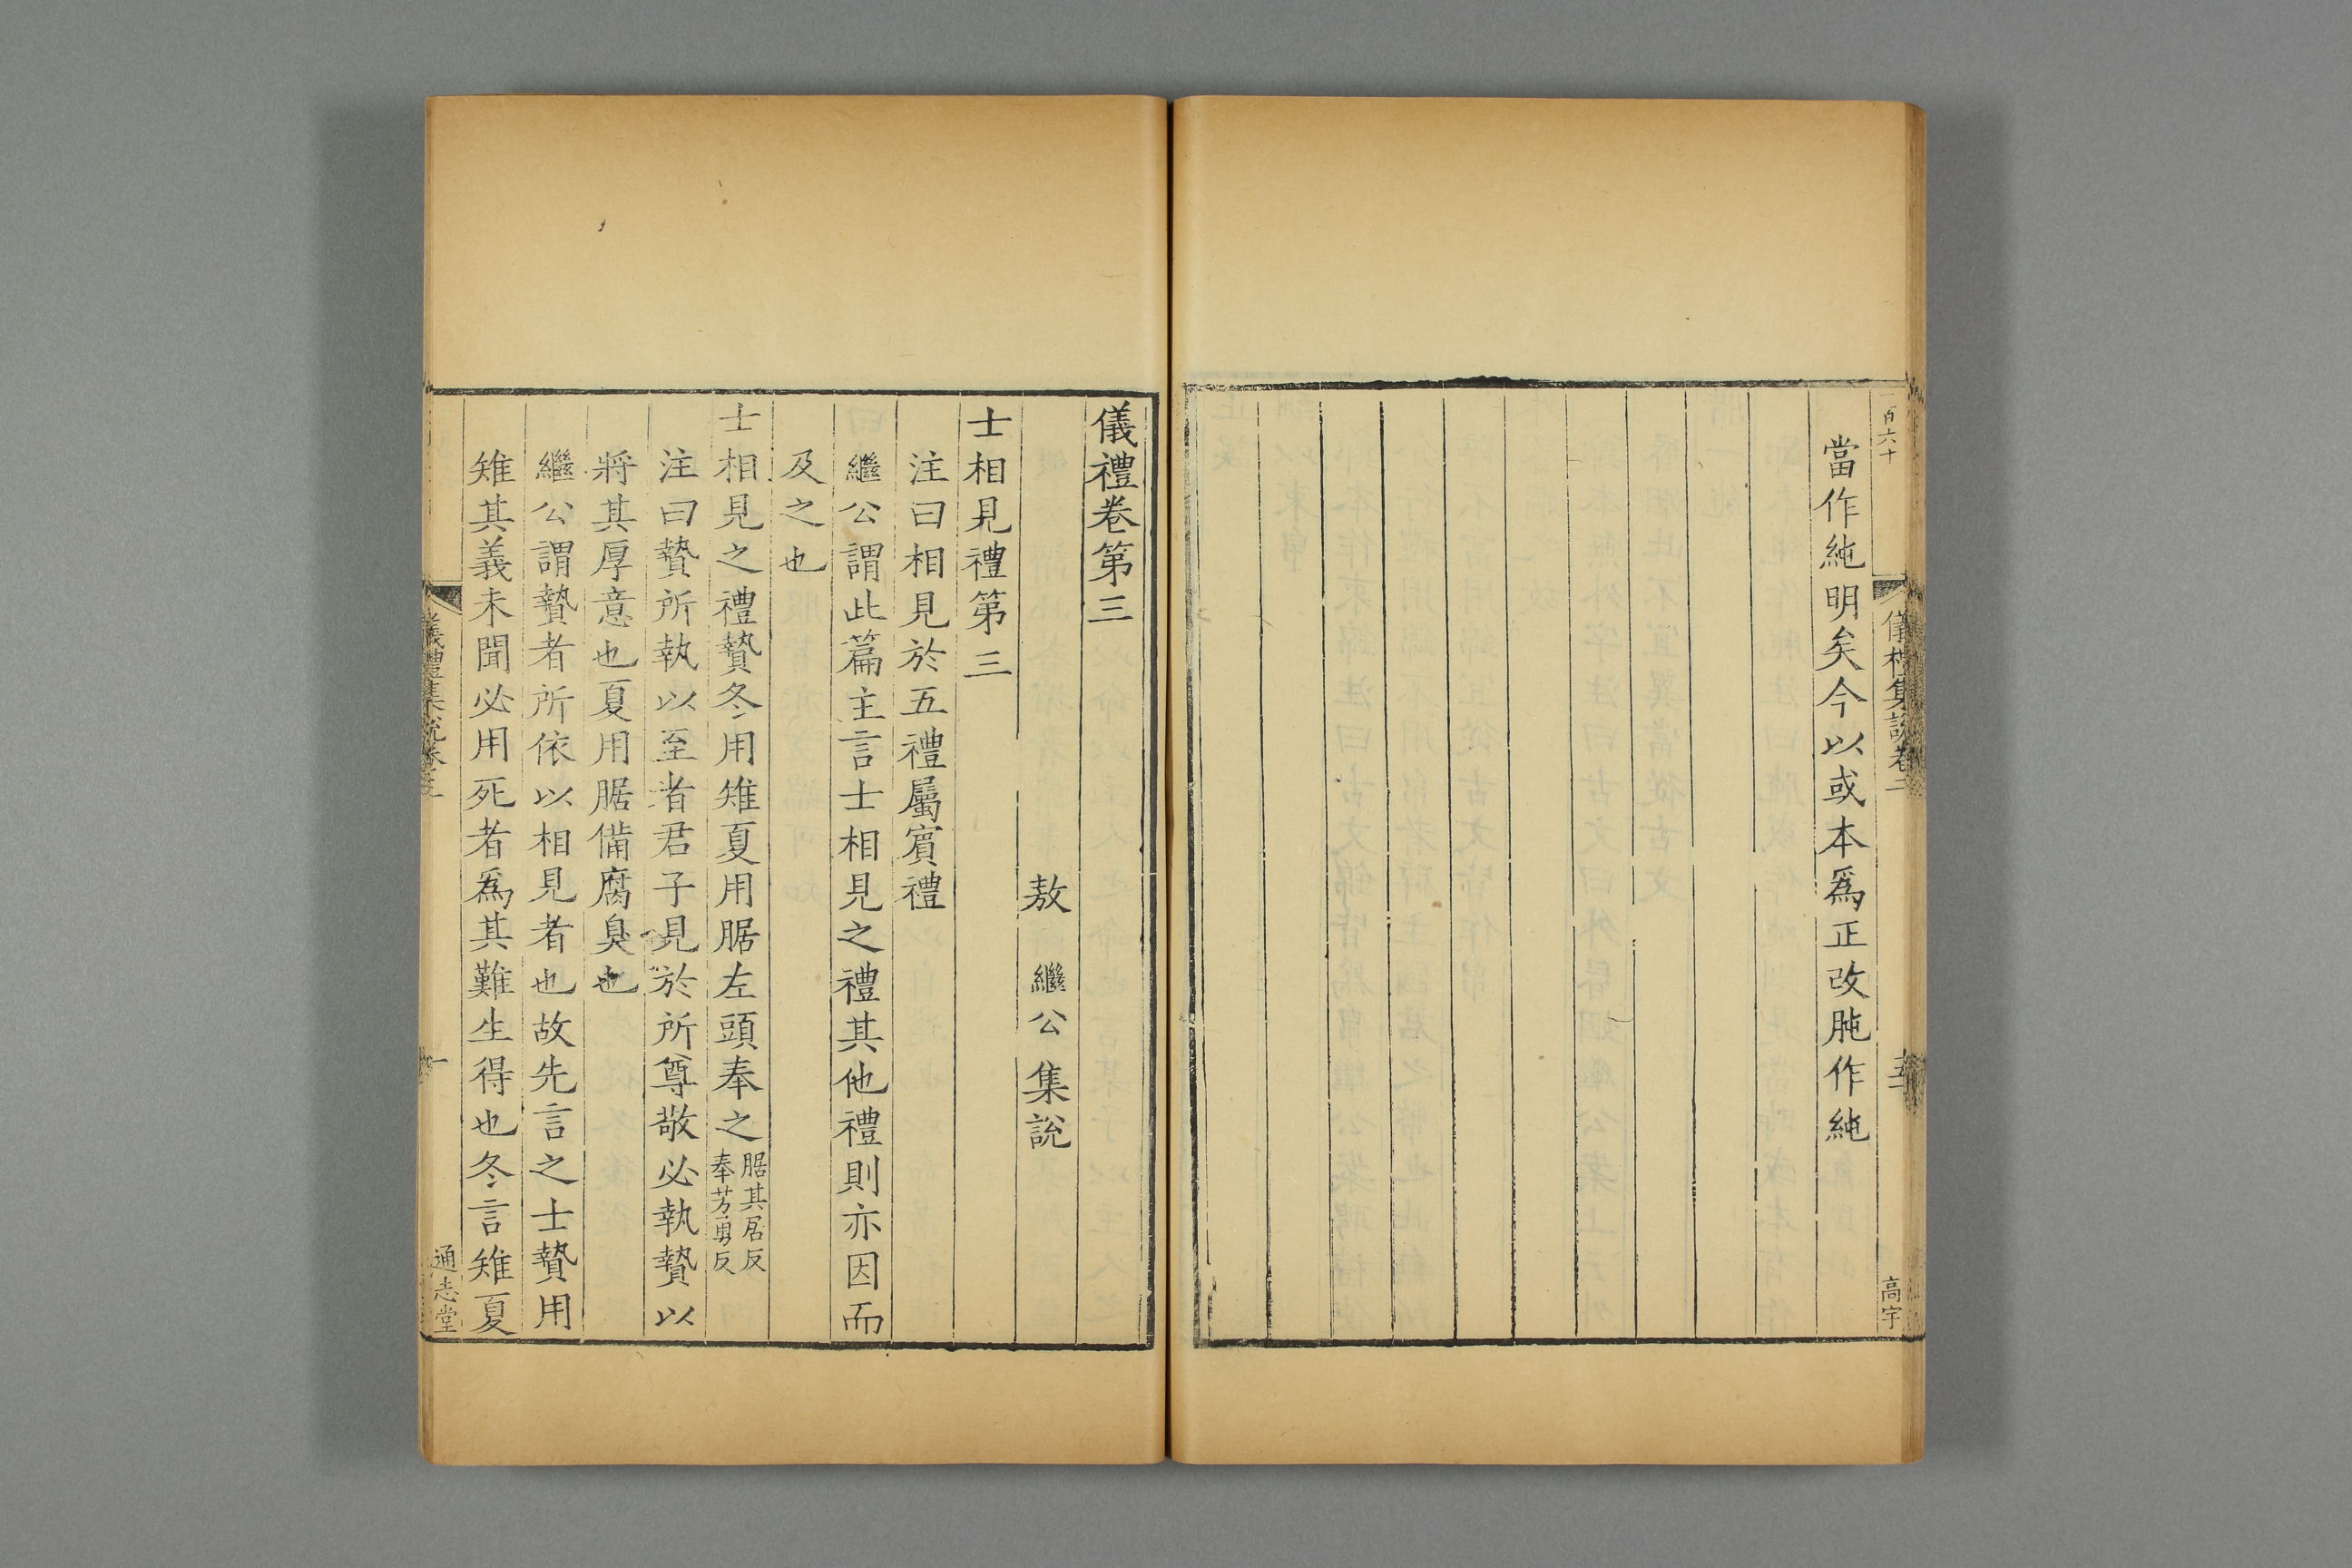 一百六十
儀禮集說卷二
高宇
當作純明矣今以或本為正改肫作純
儀禮卷第三
敖繼公集說
士相見禮第三
注曰相見於五禮屬賓禮
繼公謂此篇主言士相見之禮其他禮則亦因而
及之也
士相見之禮贄冬用雉夏用腒左頭奉之腒其居反奉芳勇反
注曰贄所執以至者君子見於所尊敬必執贄以
將其厚意也夏用腒備腐臭也
繼公謂贄者所依以相見者也故先言之士贄用
雉其義未聞必用死者爲其難生得也冬言雉夏
儀禮集說卷三
一
通志堂